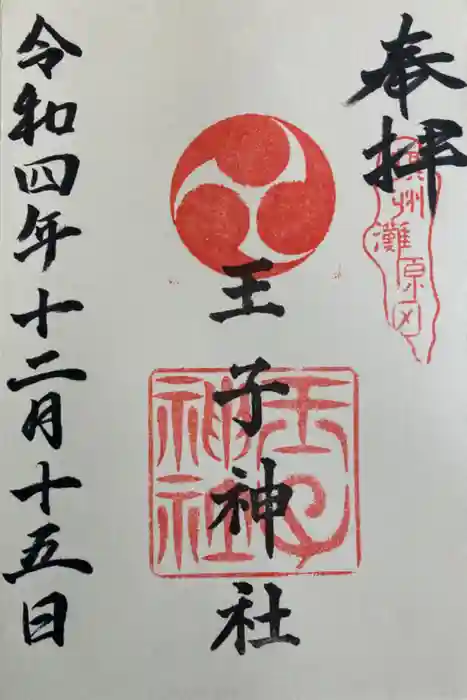 奉拝
王子神社
王子神社
令和四年十二月十五日